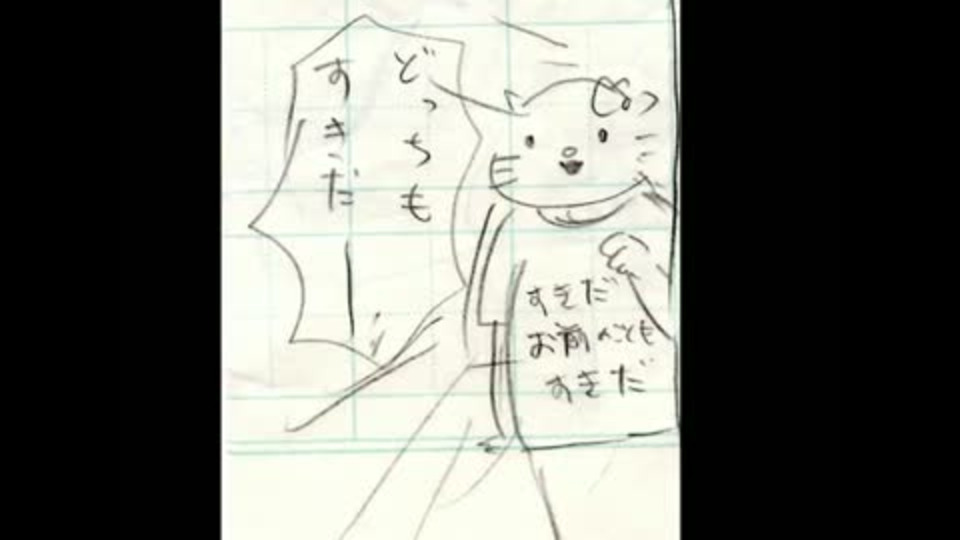 どっちも
すきだー
すきだ
お前のことも
すきだ